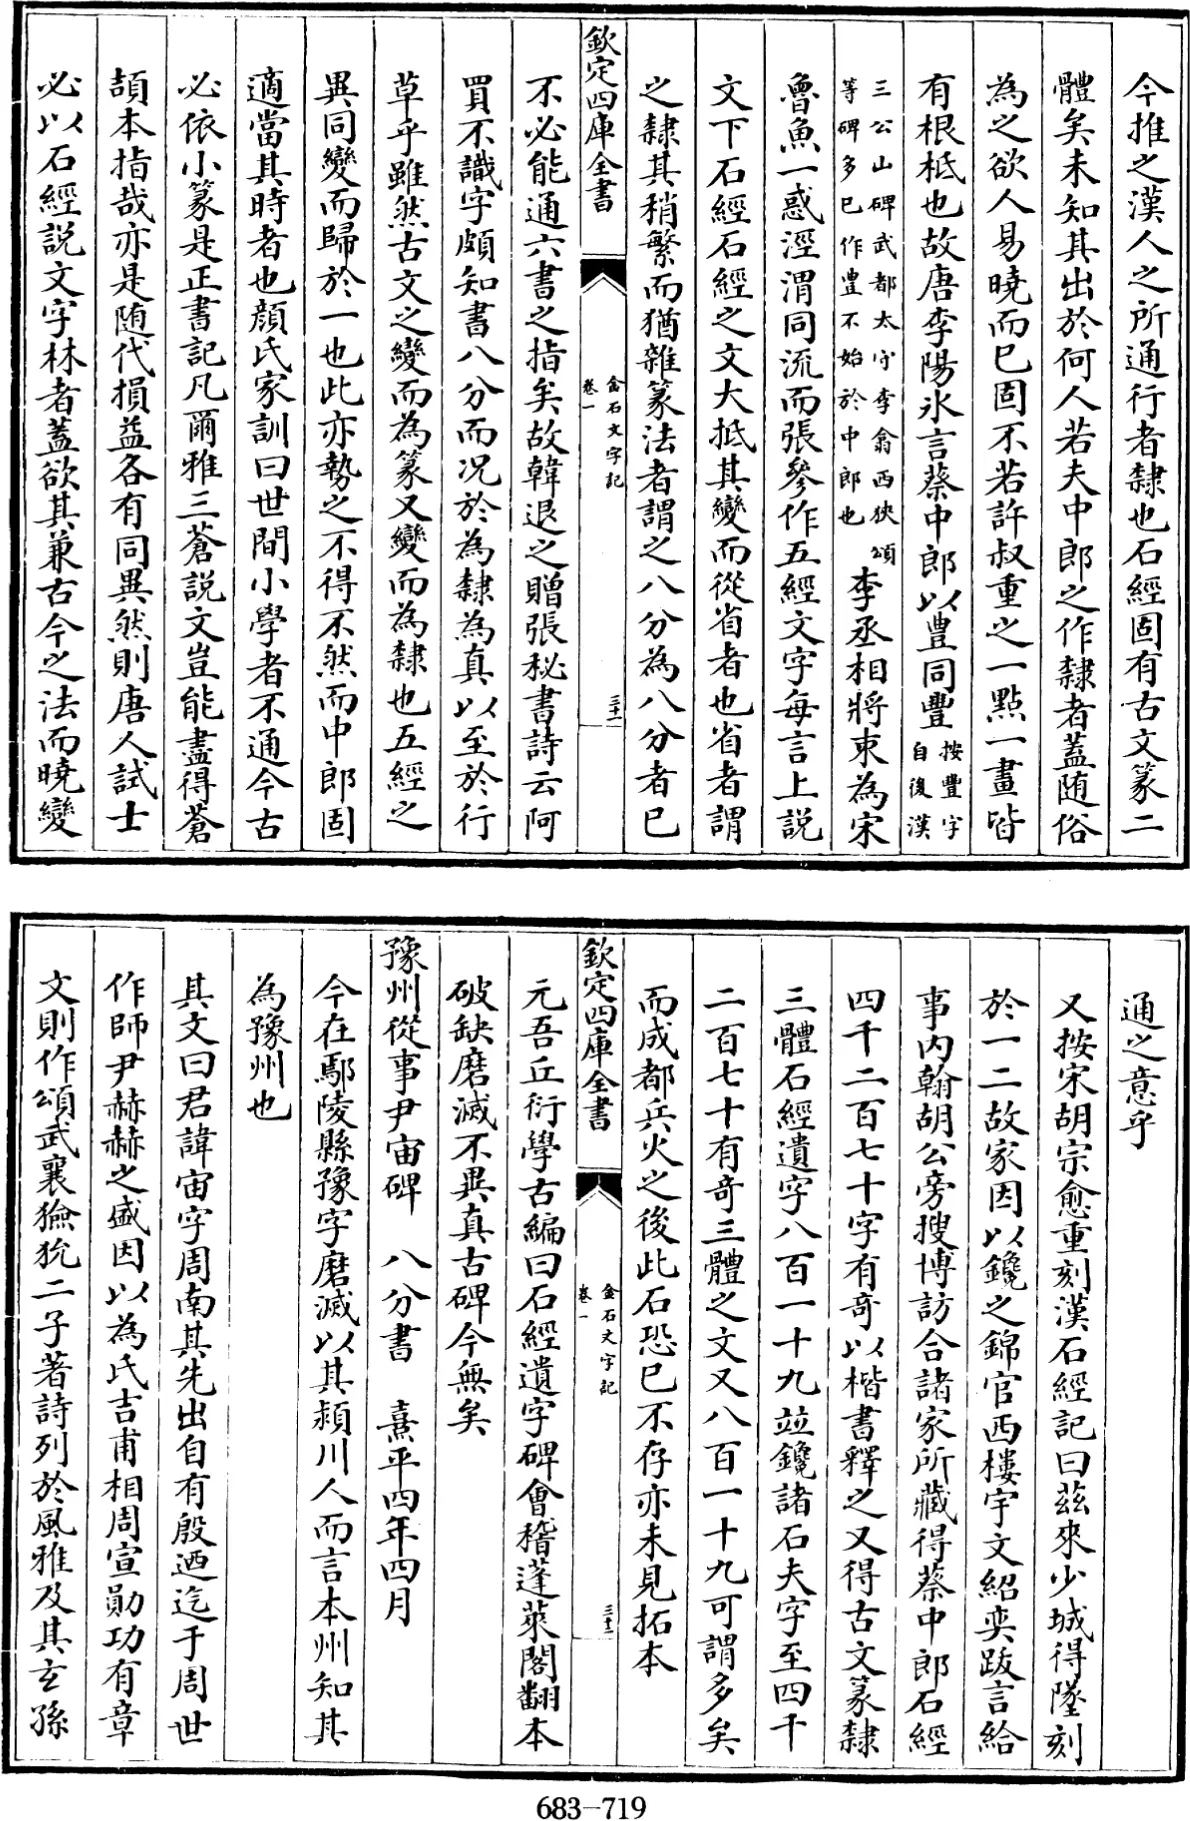 今推之漢人之所通行者隷也石經固有古文篆二
體矣未知其出於何人若夫中郎之作隷者葢随俗
為之欲人易曉而已固不若許叔重之一點一畫皆
有根柢也故唐李陽冰言蔡中郎以豊同豐
按豐字
自後漢
三公山碑武都太守李翕西狹頌
等碑多已作豊不始於中郎也
李丞相將朿為宋
魯魚一惑涇渭同流而張參作五經文字每言上説
文下石經石經之文大抵其變而從省者也省者謂
之隷其稍繁而猶雜篆法者謂之八分為八分者已
欽定四庫全書
金石文字記
卷一
三十一
不必能通六書之指矣故韓退之贈張秘書詩云阿
買不識字頗知書八分而况於為隷為真以至於行
草乎雖然古文之變而為篆又變而為隷也五經之
異同變而歸於一也此亦勢之不得不然而中郎固
適當其時者也顔氏家訓曰世間小學者不通今古
必依小篆是正書記凡爾雅三蒼説文豈能盡得蒼
頡本指哉亦是随代損益各有同異然則唐人試士
必以石經説文字林者葢欲其兼古今之法而曉變
通之意乎
又按宋胡宗愈重刻漢石經記曰兹來少城得墜刻
於一二故家因以鑱之錦官西樓宇文紹奕跋言給
事内翰胡公旁搜博訪合諸家所藏得蔡中郎石經
四千二百七十字有奇以楷書釋之又得古文篆隷
三體石經遺字八百一十九竝鑱諸石夫字至四千
二百七十有奇三體之文又八百一十九可謂多矣
而成都兵火之後此石恐已不存亦未見拓本
欽定四庫全書
金石文字記
卷一
三十二
元吾丘衍學古編曰石經遺字碑會稽蓬萊閣翻本
破缺磨滅不異真古碑今無矣
豫州從事尹宙碑 八分書 熹平四年四月
今在鄢陵縣豫字磨滅以其潁川人而言本州知其
為豫州也
其文曰君諱宙字周南其先出自有殷迺迄于周世
作師尹赫赫之盛因以為氏吉甫相周宣勛功有章
文則作頌武襄獫狁二子著詩列於風雅及其玄孫
683-719